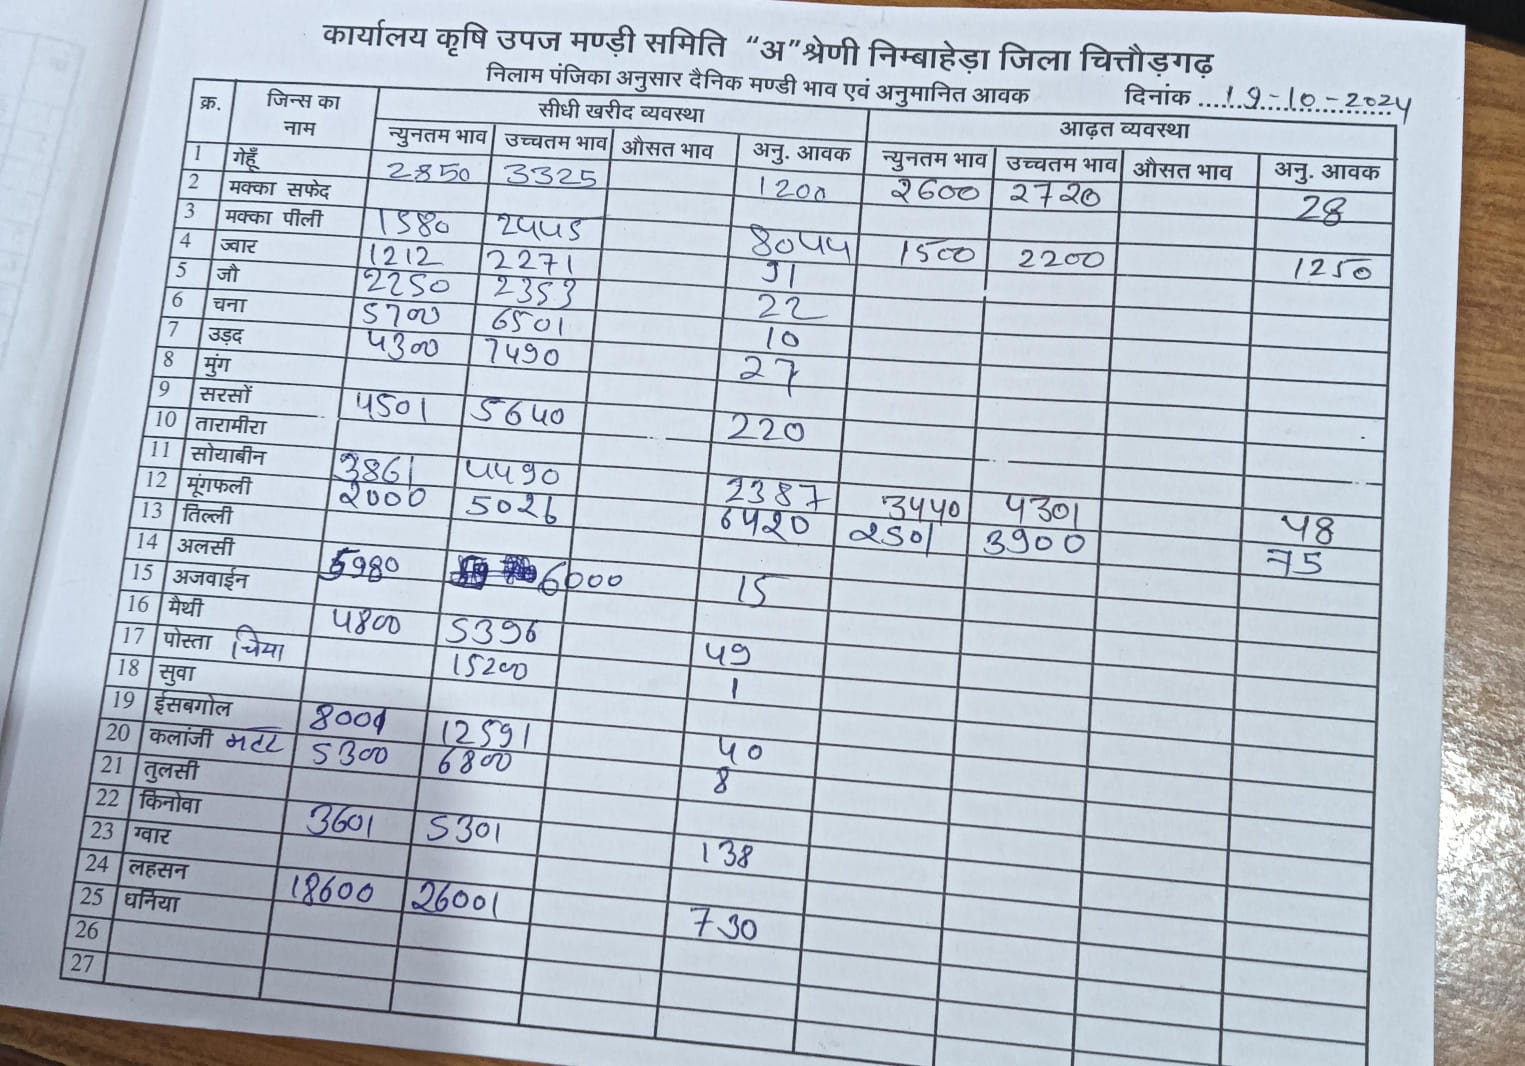 कार्यालय कृषि उपज मण्डी समिति "अ" श्रेणी निम्बाहेड़ा जिला चित्तौड़गढ़
निलाम पंजिका अनुसार दैनिक मण्डी भाव एवं अनुमानित आवक दिनांक ....19-10-2024
क्र. जिन्स का नाम सीधी खरीद व्यवस्था आढ़त व्यवस्था
न्युनतम भाव उच्चतम भाव औसत भाव अनु. आवक न्युनतम भाव उच्चतम भाव औसत भाव अनु. आवक
1 गेहूँ 2850 3325 1200 2600 2720 28
2 मक्का सफेद
3 मक्का पीली 1580 2445 8044 1500 2200 1250
4 ज्वार 1212 2271 91
5 जौ 2250 2353 22
6 चना 5700 6501 10
7 उड़द 4300 7490 27
8 मुंग
9 सरसों 4501 5640 220
10 तारामीरा
11 सोयाबीन 3861 4490 2387 3440 4301 48
12 मूंगफली 2000 5026 6420 2501 3900 75
13 तिल्ली
14 अलसी 5980 6000 15
15 अजवाईन
16 मैथी 4800 5396 49
17 पोस्ता चिमा 15200 1
18 सुवा
19 ईसबगोल 8001 12591 40
20 कलांजी मटर 5300 6800 8
21 तुलसी
22 किनोवा 3601 5301 138
23 ग्वार
24 लहसन 18600 26001 730
25 धनिया
26
27